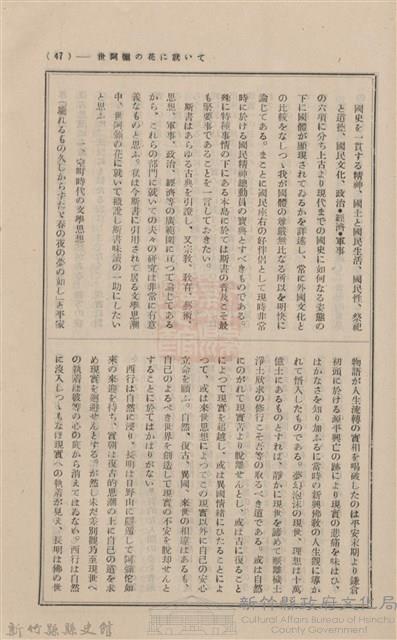 世阿彌の花に就いて ―（47）
國史を一貫する精神、國土と國民生活、國民性、祭祀
と道德、國民文化、政治●經濟●軍事
の六項に分ち上古より現代までの國史に如何なる姿態の
下に國體が顯現されてゐるかを詳述し、常に外國文化と
の比較をなしつゝ我が國體の尊嚴無比なる所以を明快に
論じてある。まことに國民座右の好伴侶として現時非常
時に於ける國民精神總動員の寶典とすべきものである。
殊に特種事情の下にある本島に於ては斯書の普及こそ最
も緊要事であることを一言しておきたい。
斯書はあらゆる古典を引證し、又宗敎、敎育、藝術、
思想、軍事、政治、經濟等の廣範圍に亙つて論じてある
から、これらの部門に就いての夫々の硏究は非常に有意
義なものと思ふ。私は今斯書に引用されて居る文學思潮
中、世阿彌の花に就いて概說し斯書味讀の一助にしたい
と思ふ。
二、室町時代の文學思想
「驕れるもの久しからずたゞ春の夜の夢の如し」と平家
物語が人生流轉の實相を喝破したのは平安末期より鎌倉
初頭に於ける源平興亡の跡により現實の悲痛を味はひ、
はかなさを知り加ふるに當時の新興佛敎の人生觀に導か
れて悟入したものである。夢幻泡沫の現世、理想は十萬
億土にあるものとすれば、靜かに現世を諦めて順離穢土
淨土欣求の修行こそ吾等の取るべき道である。或は自然
にのがれて現實苦より脫離せんとし、或は古に復ること
によつて現實を超越し、或は異國情緖にひたることによ
つて、或は來世思想によつてこの現實以外に自己の安心
立命を願ふ。自然、復古、異國、來世の相違はあるも、
自己のよるべき世界を創造して現實の不安を脫却せんと
することに於てはかはりがない。
西行は自然に浸り、長明は日野山に隱遁して阿彌陀如
來の來迎を待ち、實朝は復古的思潮の上に自己の道を求
め現實を廻避せんとする。が然し未だ差別觀乃至現世へ
の執着は彼等の心の底から消えてはゐない。西行は自然
に沒入しつゝもなほ現實への執着が見え、長明は佛の世
新竹縣縣史館
新竹縣政府文化局
Cultural Affairs Bureau of Hsinchu
County Government